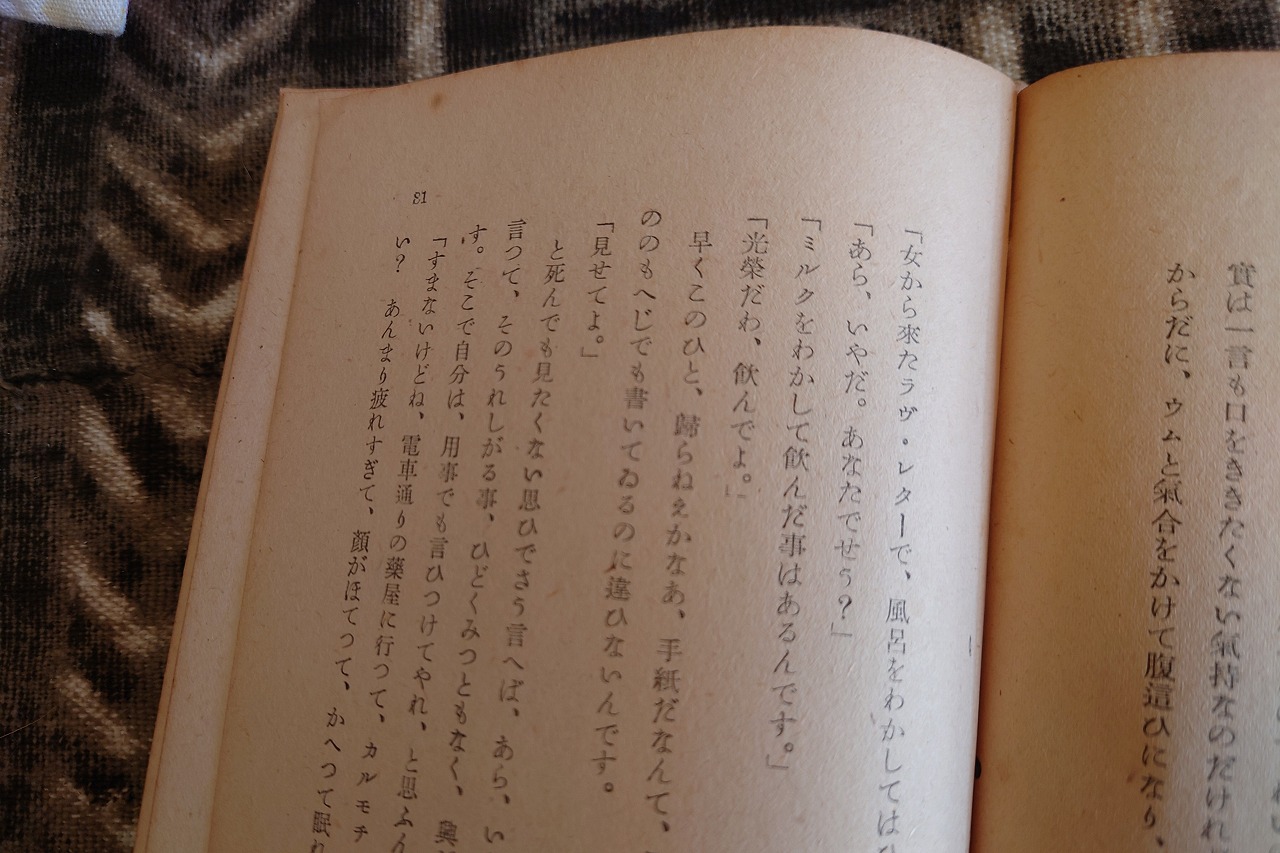 實は一言も口をききたくない氣持なのだけれ
からだに、ウムと氣合をかけて腹這ひになり、
「女から來たラヴ・レターで、風呂をわかしては
「あら、いやだ。あなたでせう？」
「ミルクをわかして飮んだ事はあるんです。」
「光榮だわ、飮んでよ。」
早くこのひと、歸らねえかなあ、手紙だなんて、
ののもへじでも書いてゐるのに違ひないんです。
「見せてよ。」
と死んでも見たくない思ひでさう言へば、あら、い
言つて、そのうれしがる事、ひどくみつともなく、興
す。そこで自分は、用事でも言ひつけてやれ、と思ふん
「すまないけどね、電車通りの藥屋に行つて、カルモチ
い？　あんまり疲れすぎて、顏がほてつて、かへつて眠れ
81